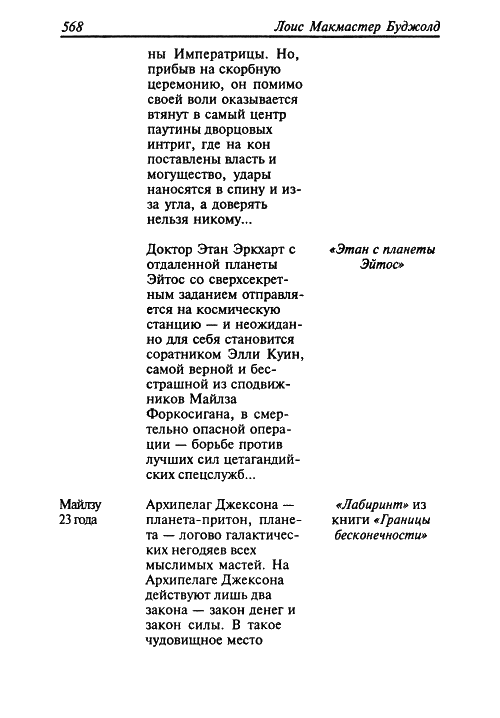 568
Лоис Макмастер Буджолд
ны Императрицы. Но,
прибыв на скорбную
церемонию, он помимо
своей воли оказывается
втянут в самый центр
паутины дворцовых
интриг, где на кон
поставлены власть и
могущество, удары
наносятся в спину и из-
за угла, а доверять
нельзя никому...
Доктор Этан Эркхарт с
отдаленной планеты
Эйтос со сверхсекрет-
ным заданием отправля-
ется на космическую
станцию — и неожидан-
но для себя становится
соратником Элли Куин,
самой верной и бес-
страшной из сподвиж-
ников Майлза
Форкосигана, в смер-
тельно опасной опера-
ции — борьбе против
лучших сил цетагандий-
ских спецслужб...
«Этан с планеты
Эйтос»
Майлзу
23 года
Архипелаг Джексона —
планета-притон, плане-
та — логово галактичес-
ких негодяев всех
мыслимых мастей. На
Архипелаге Джексона
действуют лишь два
закона — закон денег и
закон силы. В такое
чудовищное место
«Лабиринт» из
книги «Границы
бесконечности»